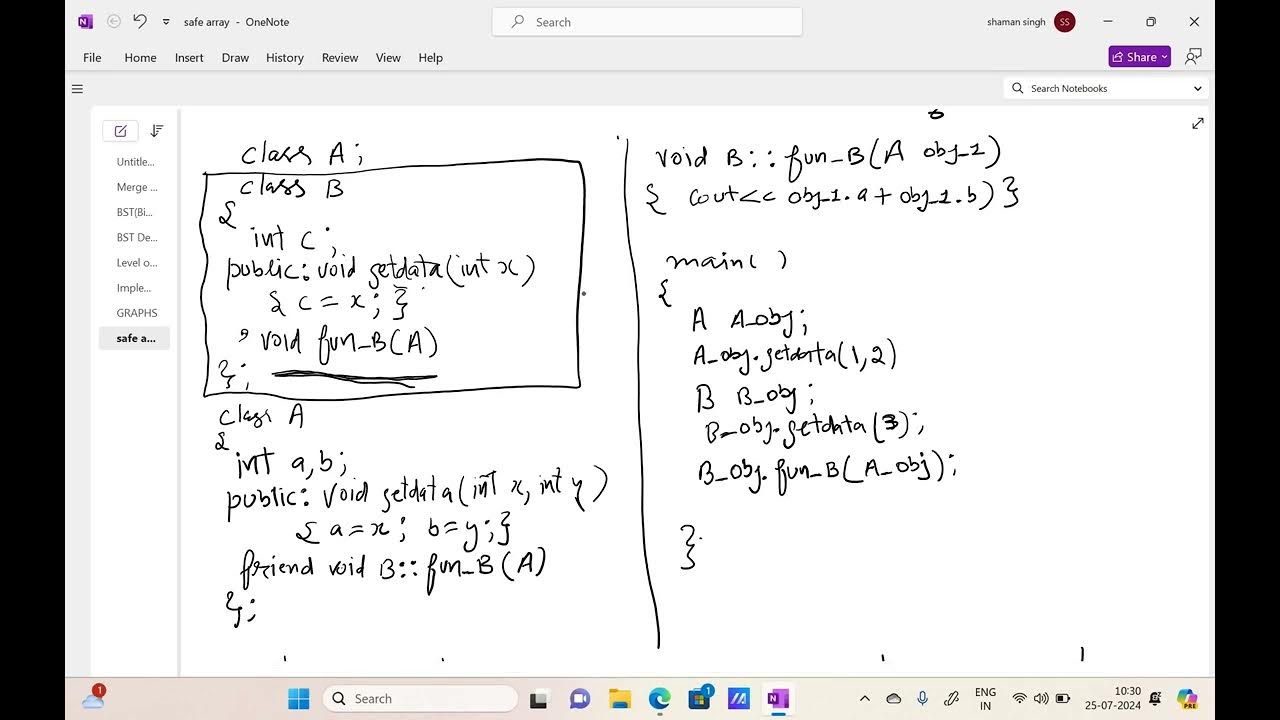 safe array - OneNote
Search
shaman singh
SS
File Home Insert Draw History Review View Help
Share
Search Notebooks
Untitle...
Merge ...
BST(Bi...
BST De...
Level o...
Imple...
GRAPHS
safe a...
class A;
class B
{
int c;
public: void getdata(int x)
{ c = x; }
void fun_B(A)
};
class A
{
int a,b;
public: void getdata(int x, int y)
{ a=x; b=y;}
friend void B:: fun_B(A)
};
void B:: fun_B(A obj_1)
{ cout<< obj_1.a + obj_1.b) }
main( )
{
A A_obj;
A_obj.getdata(1,2)
B B_obj;
B_obj.getdata(3);
B_obj.fun_B(A_obj);
}
1
Search
1
ENG
IN
10:30
25-07-2024
PRE